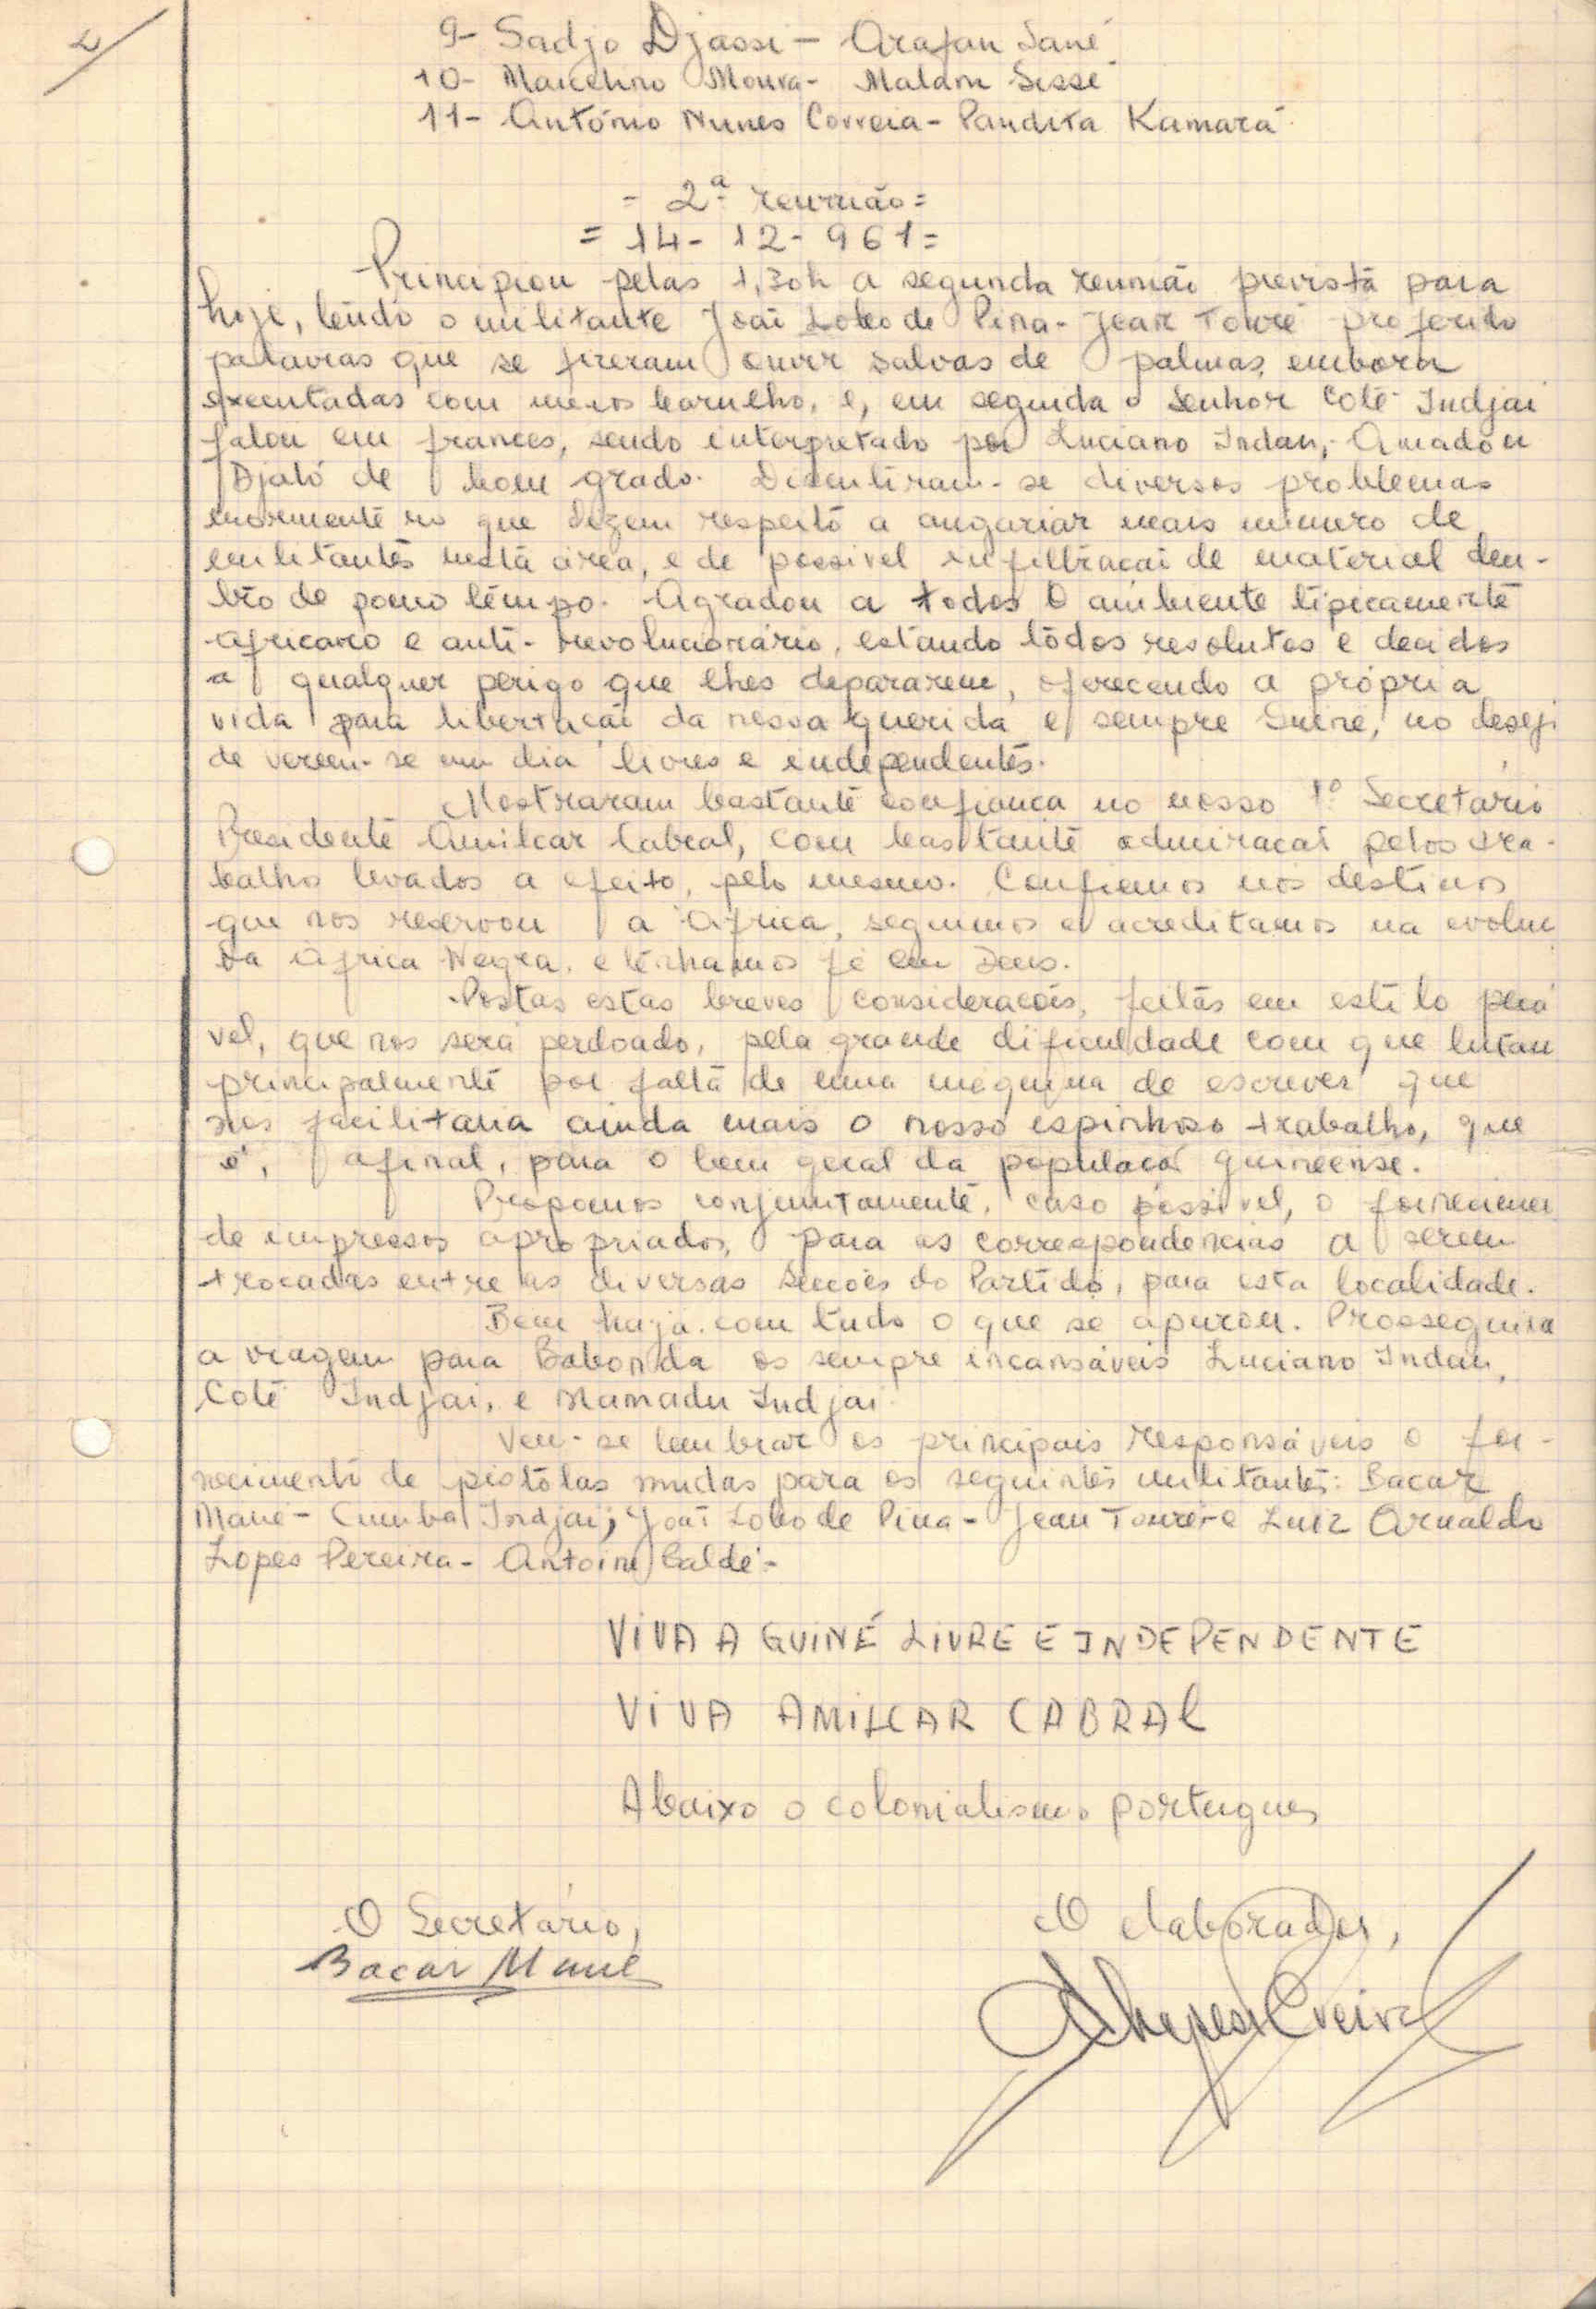 2
9- Sadjo Djassi - Arafan Sané
10- Marcelino Moura - Malam Sissé
11- António Nunes Correia - Pandita Kamará
- 2ª reunião =
= 14 - 12 - 961 =
Principiou pelas 1,30h a segunda reunião prevista para
hoje, tendo o militante João Lobo de Pina - Jean Touré proferido
palavras que se fizeram ouvir salvas de palmas, embora
executadas com menos barulho, e, em seguida o Senhor Coté Indjai
falou em francês, sendo interpretado por Luciano Indau, - Amadou
Djaló de bom grado. Discutiram-se diversos problemas
mormente no que dizem respeito a angariar mais número de
militantes nesta área, e de possivel infiltração de material den-
tro de pouco tempo. Agradou a todos o ambiente tipicamente
africano e anti-revolucionário, estando todos resolutos e decidos
a qualquer perigo que lhes depararem, oferecendo a própria
vida para libertação da nossa querida e sempre Guiné, no desejo
de verem-se um dia livres e independentes.
Mostraram bastante confiança no nosso 1º Secretário
Presidente Amilcar Cabral, com bastante admiração pelos tra-
balho levados a efeito, pelo mesmo. Confiemos nos destinos
que nos reservou a África, seguimos e acreditamos na evolu
da África Negra, e tenhamos fé em Deus.
Postas estas breves considerações, feitas em estilo
vel, que nos será perdoado, pela grande dificuldade com que lutam
principalmente por falta de uma maquina de escrever, que
nos facilitaria ainda mais o nosso espinhoso trabalho, que
é, afinal, para o bem geral da população guineense.
Propomos conjuntamente, caso possivel, o fornecimen
de impressos apropriados, para as correspondencias a serem
trocadas entre as diversas Secções do Partido, para esta localidade.
Bem haja com tudo o que se apurou. Prosseguirá
a viagem para Babonda os sempre incansáveis Luciano Indau,
Coté Indjai, e Mamadu Indjai.
Vem-se lembrar os principais responsáveis o for-
necimento de pistolas mudas para os seguintes militantes: Bacar
Mané - Cumba Indjai; João Lobo de Pina - Jean Touré e Luiz Arnaldo
Lopes Pereira - Antoine Baldé -
VIVA A GUINÉ LIVRE E INDEPENDENTE
VIVA AMILCAR CABRAL
Abaixo o colonialismo portugues
O Secretário, O elaborador,
Bacar Mané